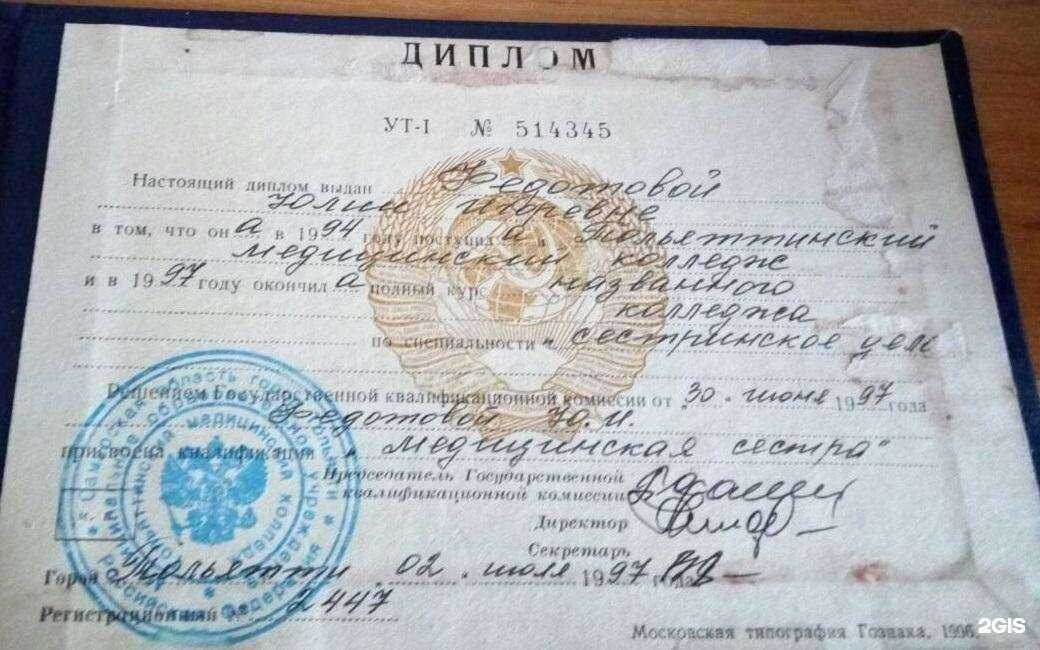 ДИПЛОМ
УТ-I № 514345
Настоящий диплом выдан Федотовой
Юлии Игоревне
в том, что он а в 1994 году поступил а в Тольяттинский
медицинский колледж
и в 1997 году окончил а полный курс названного
колледжа
по специальности „сестринское дело
Решением Государственной квалификационной комиссии от 30 июня 1997 года
Федотовой Ю.И.
присвоена квалификация „медицинская сестра"
Председатель Государственной
квалификационной комиссии
Директор
Секретарь
Город Тольятти 02 июля 1997 года
Регистрационный № 2447
Московская типография Гознака, 1996.
2GIS